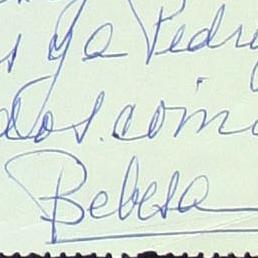 s y a Pedro
dos. coim
Bebesa